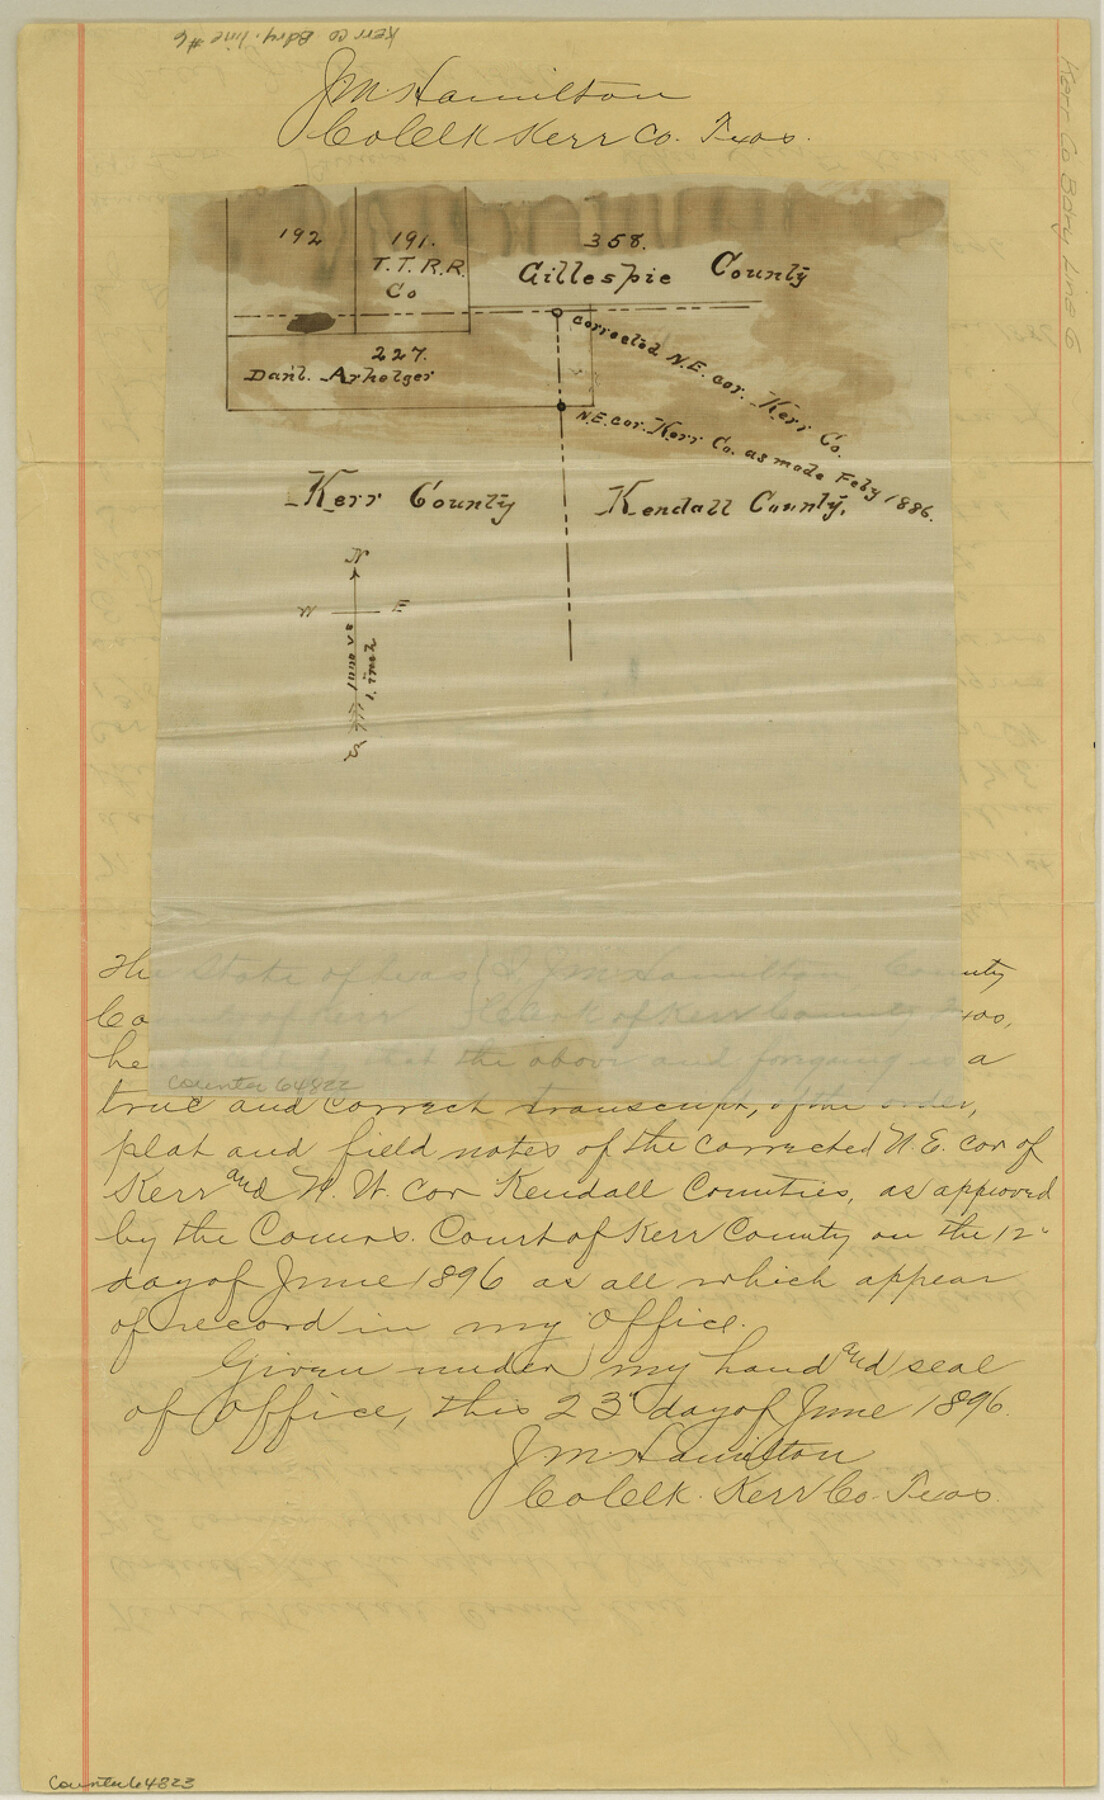 Kerr Co Bdry. line #6
J.M. Hamilton
Co Clk Kerr Co. Texas.
Kerr Co Bdry Line 6
192
191.
T.T.R.R.
Co
358.
Gillespie County
227.
Danl. Arhelger
corrected N.E. cor. Kerr Co.
N.E. cor. Kerr Co. as made Feby 1886.
Kerr County
Kendall County.
N
W E
S
The State of Texas } I, J M Hamilton, County
County of Kerr } Clerk of Kerr County Texas,
hereby certify that the above and foregoing is a
true and correct transcript, of the order,
plat and field notes of the corrected N.E. cor of
Kerr and N.W. cor Kendall Counties, as approved
by the Comrs. Court of Kerr County on the 12"
day of June 1896 as all which appear
of record in my office.
Given under my hand and seal
of office, this 23" day of June 1896.
J.M. Hamilton
Co Clk. Kerr Co. Texas.
counter 64822
Counter 64823